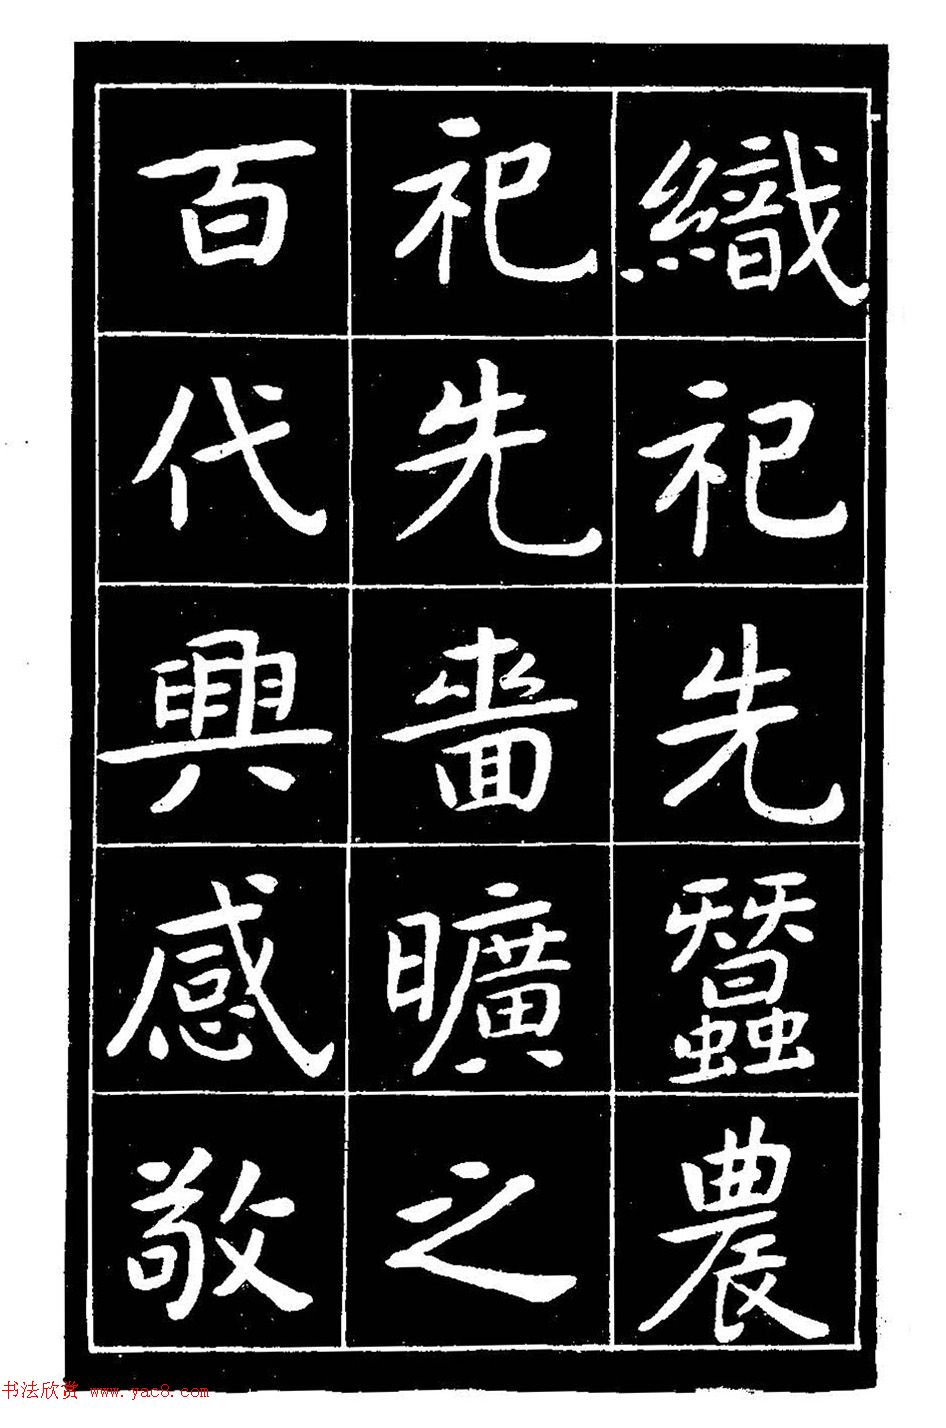 織祀先蠶農
祀先嗇曠之
百代興感敬
书法欣赏 www.yac8.com